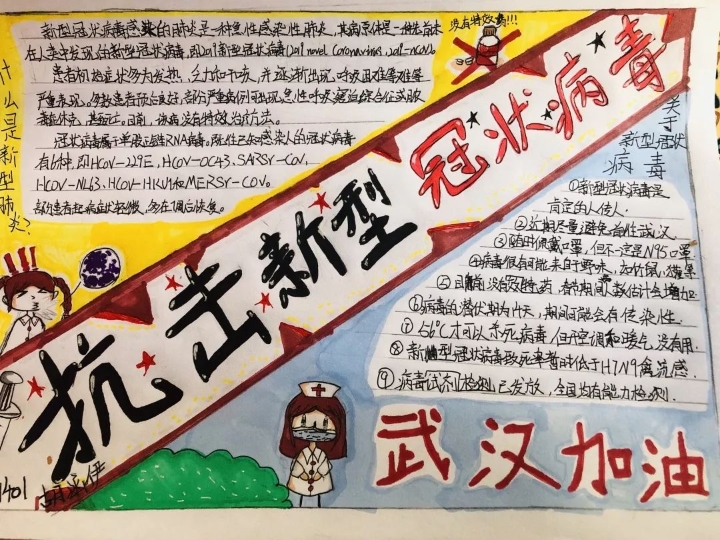 新型冠状病毒感染的肺炎是一种急性感染性肺炎，其病原体是一种先前未
在人类中发现的新型冠状病毒，即2019新型冠状病毒(2019 novel Coronavirus, 2019-nCoV)
患者初始症状多为发热、乏力和干咳，并逐渐出现呼吸困难等
严重表现。多数患者预后良好，部分严重病例可出现急性呼吸窘迫综合征或脓
毒症休克，甚至死亡。目前，该病没有特效治疗方法。
冠状病毒属于单股正链RNA病毒。既往已知感染人的冠状病毒
有6种，即HCOV-229E、HCOV-OC43、SARSY-COV、
HCOV-NL63、HCOV-HKU1和MERSY-COV。
部分患者起病症状轻微，多在1周后恢复。
没有特效药!!!
什么是新型肺炎?
抗击新型冠状病毒
关于
新型冠状
病毒
①新型冠状病毒是
肯定的人传人.
②近期尽量避免前往武汉
③随时佩戴口罩,但不一定是N95口罩
④病毒很有可能来自野味,如竹鼠,獾等
⑤目前没有特效药,春节期间人数估计会增加
⑥病毒的潜伏期为14天,期间可能会有传染性.
⑦56℃才可以杀死病毒,但开空调和暖气没有用.
⑧新型冠状病毒致死率暂时低于H7N9禽流感.
⑨病毒试剂检测已发放,全国均有能力检测.
武汉加油
1401